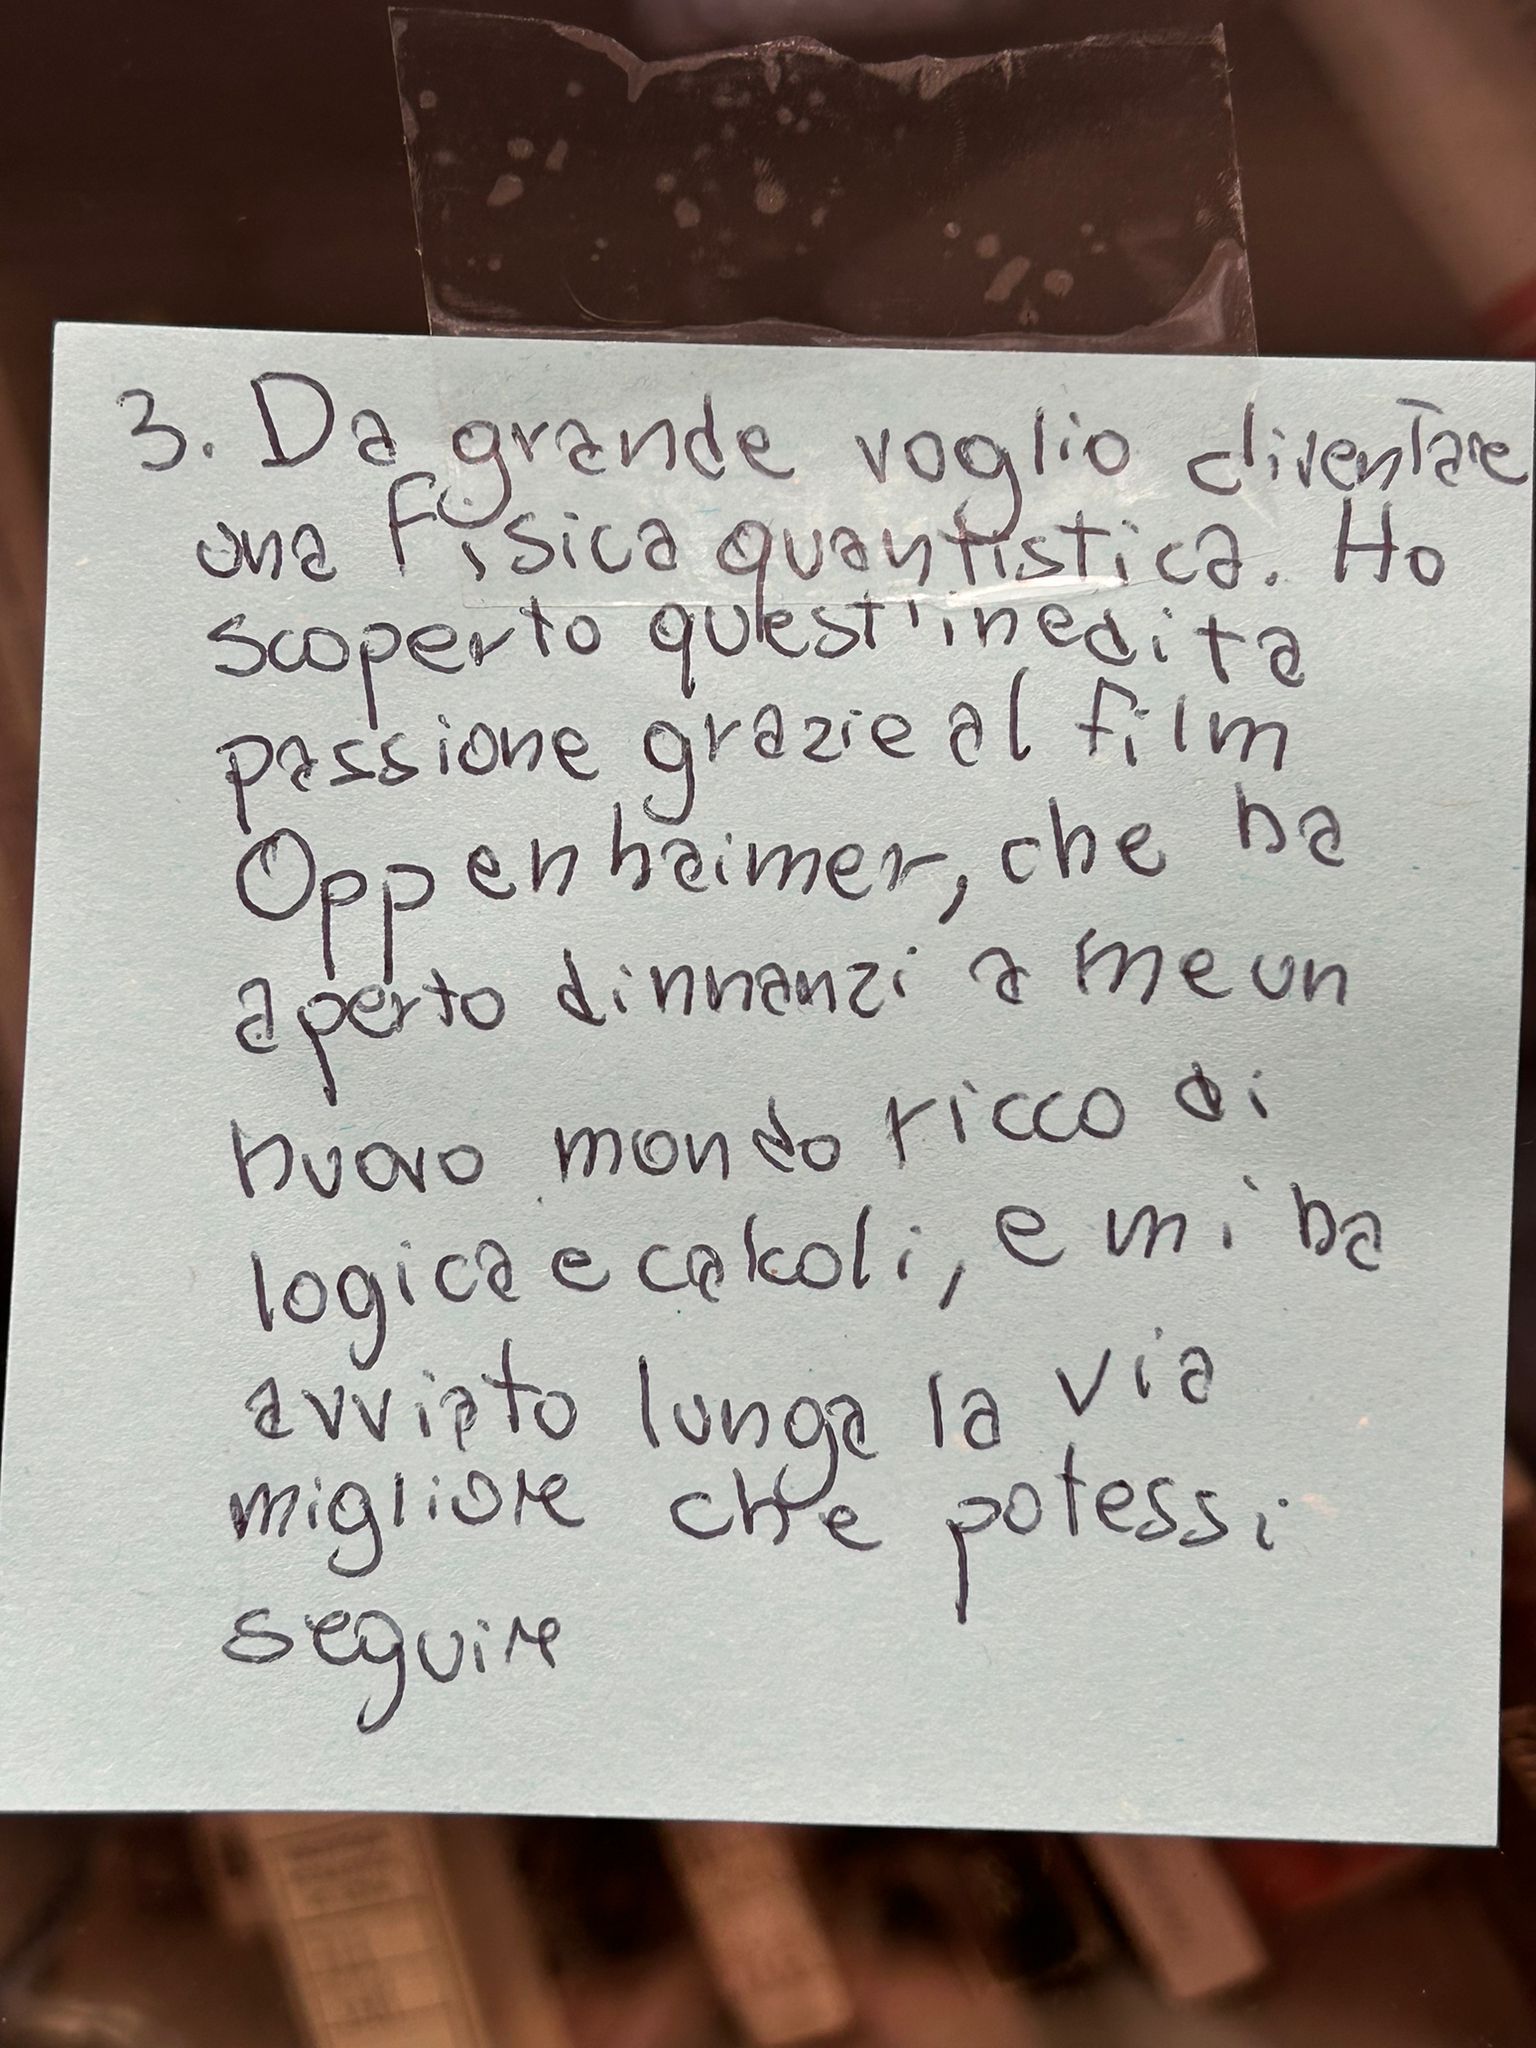 3. Da grande voglio diventare
una fisica quantistica. Ho
scoperto quest'inedita
passione grazie al film
Oppenhaimer, che ha
aperto dinnanzi a me un
nuovo mondo ricco di
logica e calcoli, e mi ha
avviato lunga la via
migliore che potessi
seguire